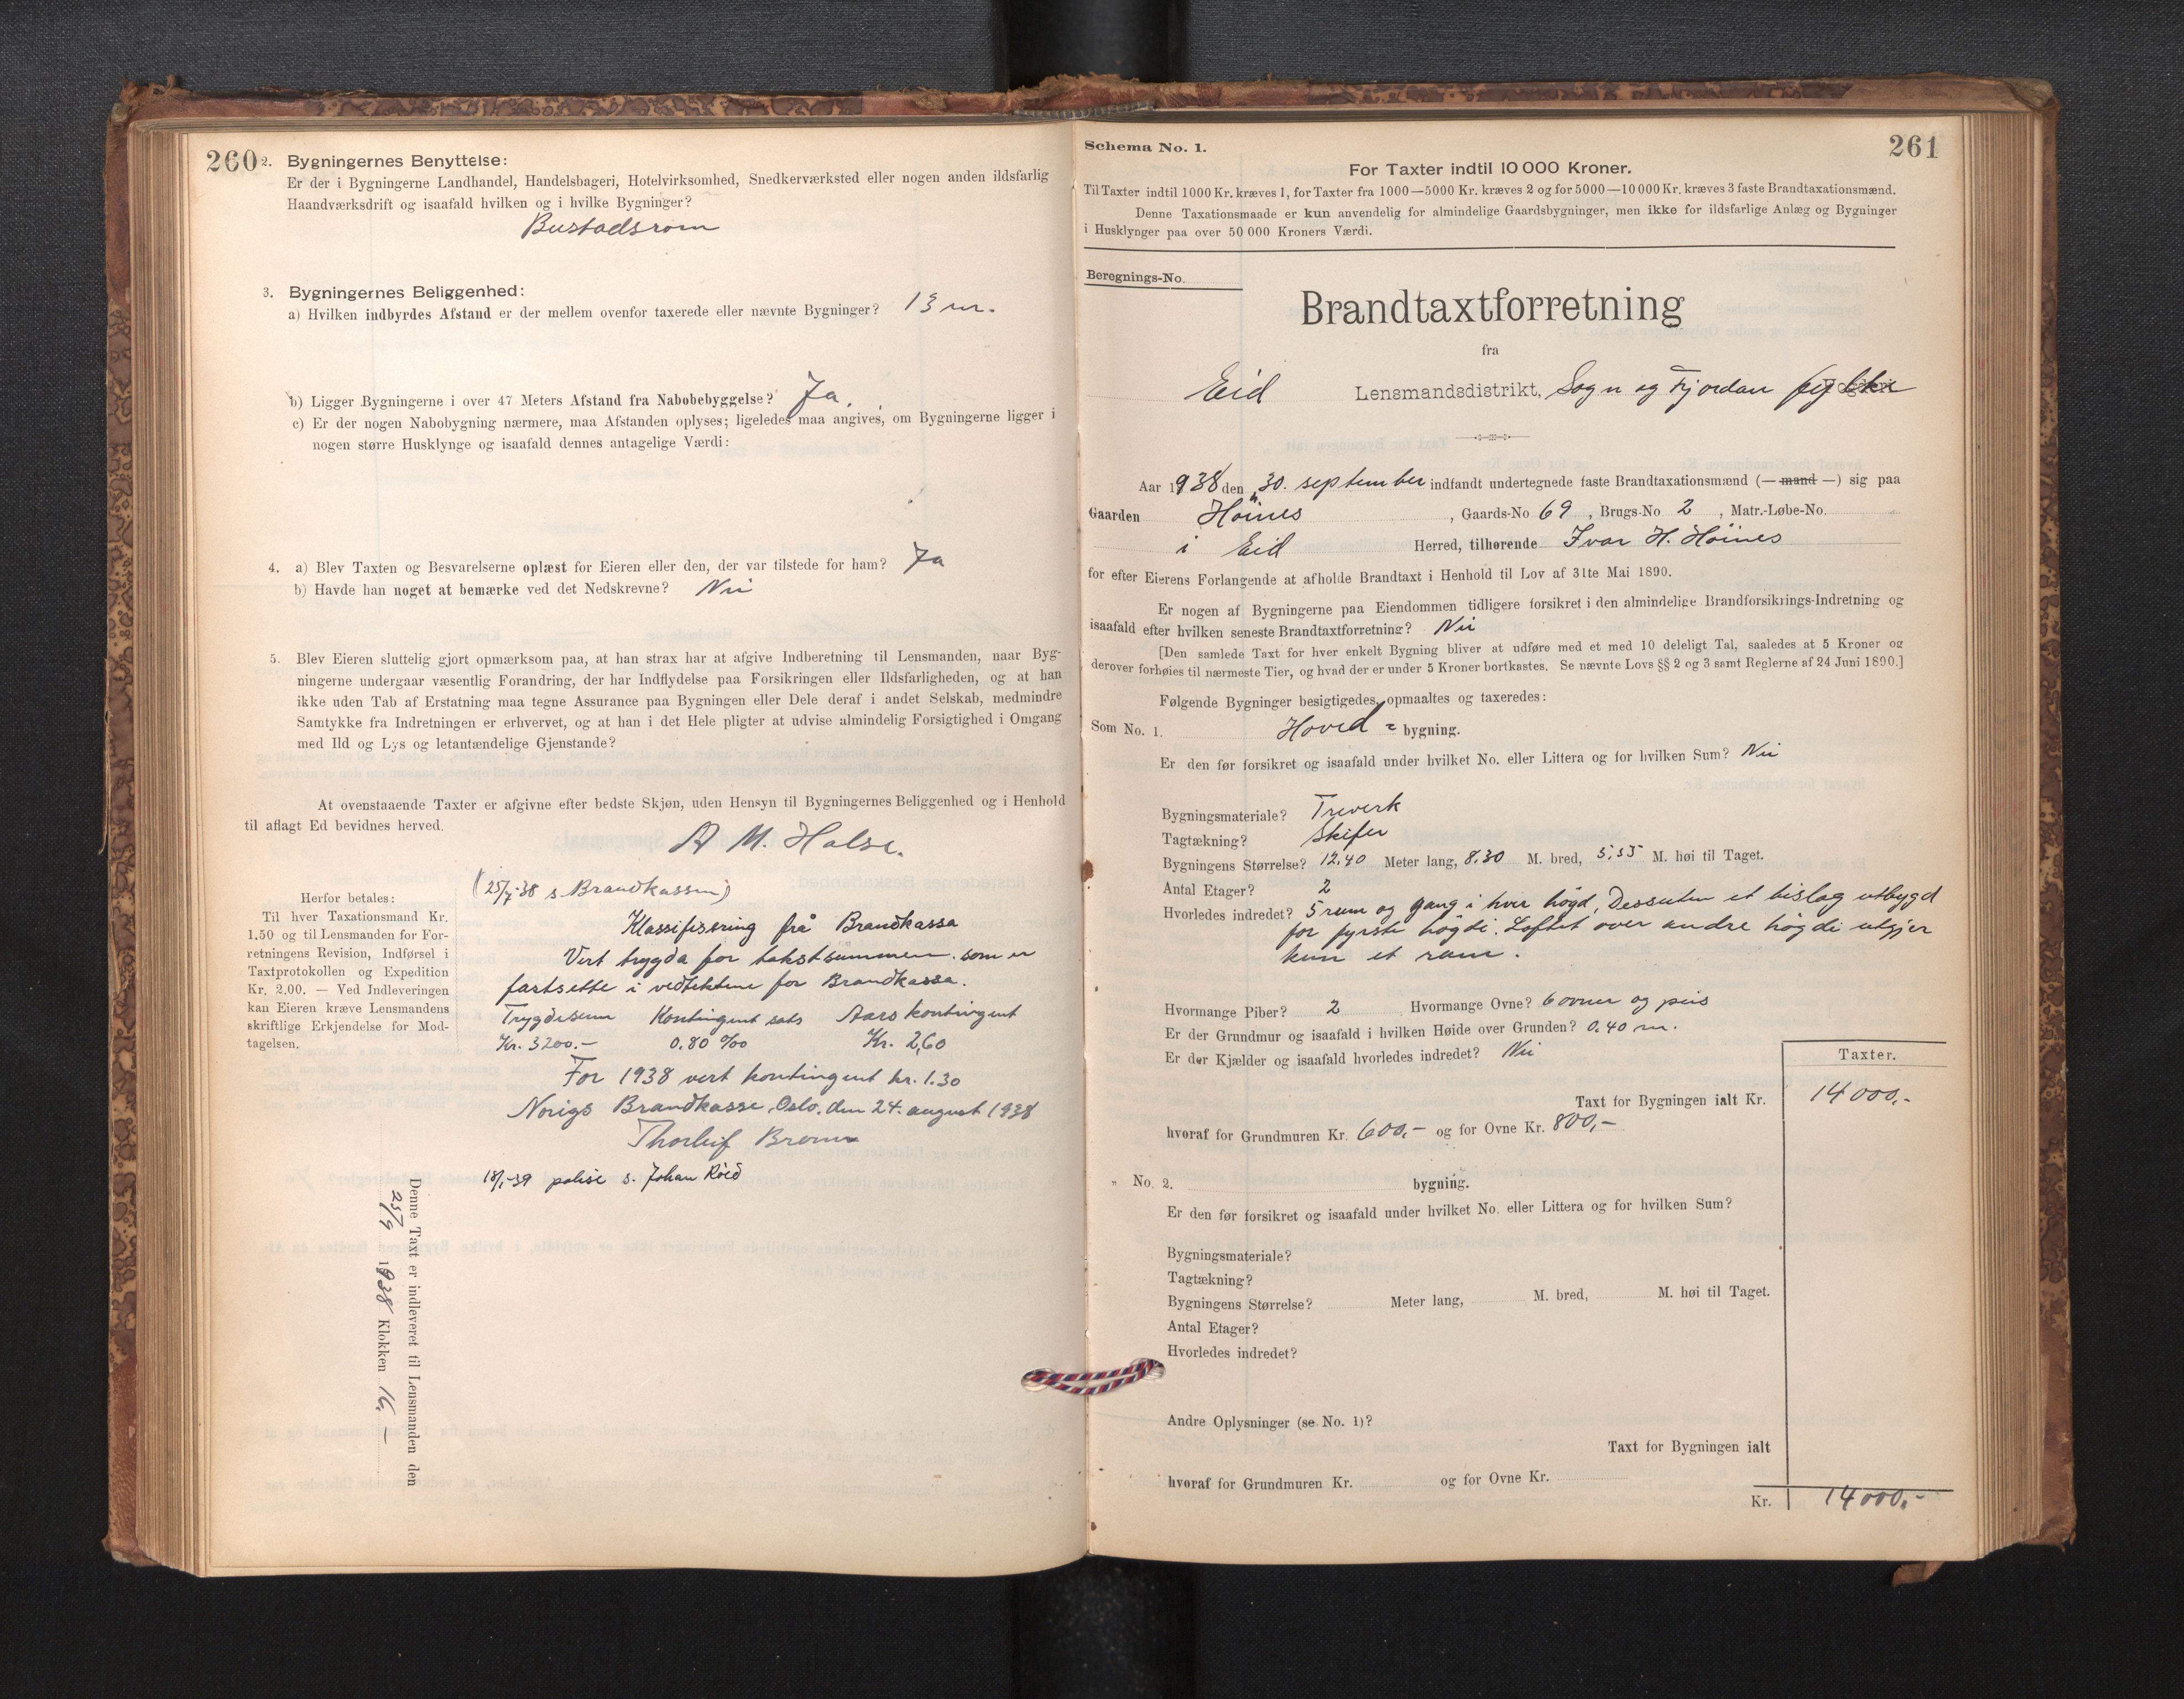 260
2. Bygningernes Benyttelse:
Er der i Bygningerne Landhandel, Handelsbageri, Hotelvirksomhed, Snedkerværksted eller nogen anden ildsfarlig
Haandværksdrift og isaafald hvilken og i hvilke Bygninger?
Bustadsrom
3. Bygningernes Beliggenhed:
a) Hvilken indbyrdes Afstand er der mellem ovenfor taxerede eller nævnte Bygninger? 13 m.
b) Ligger Bygningerne i over 47 Meters Afstand fra Nabobebyggelse? Ja.
c) Er der nogen Nabobygning nærmere, maa Afstanden oplyses; ligeledes maa angives, om Bygningerne ligger i
nogen større Husklynge og isaafald dennes antagelige Værdi:
4. a) Blev Taxten og Besvarelserne oplæst for Eieren eller den, der var tilstede for ham? Ja
b) Havde han noget at bemærke ved det Nedskrevne? Nei
5. Blev Eieren sluttelig gjort opmærksom paa, at han strax har at afgive Indberetning til Lensmanden, naar Byg-
ningerne undergaar væsentlig Forandring, der har Indflydelse paa Forsikringen eller Ildsfarligheden, og at han
ikke uden Tab af Erstatning maa tegne Assurance paa Bygningen eller Dele deraf i andet Selskab, medmindre
Samtykke fra Indretningen er erhvervet, og at han i det Hele pligter at udvise almindelig Forsigtighed i Omgang
med Ild og Lys og letantændelige Gjenstande?
At ovenstaaende Taxter er afgivne efter bedste Skjøn, uden Hensyn til Bygningernes Beliggenhed og i Henhold
til aflagt Ed bevidnes herved.
A M. Halse.
Herfor betales:
Til hver Taxationsmand Kr.
1.50 og til Lensmanden for For-
retningens Revision, Indførsel i
Taxtprotokollen og Expedition
Kr. 2.00. — Ved Indleveringen
kan Eieren kræve Lensmandens
skriftlige Erkjendelse for Mod-
tagelsen.
(25/7-38 s. Brandkassen)
Klassifisering frå Brandkassa
Vert trygda for takstsummen som er
fastsette i vedtektene for Brandkassa.
Trygdesum Kontingent sats Aars kontingent
Kr. 3200.- 0.80 ‰ Kr. 2,60
For 1938 vert kontingent kr. 1.30
Norigs Brandkasse, Oslo, den 24. august 1938
Thorleif Broun
18/1-39 polise s. Johan Röed
Denne Taxt er indleveret til Lensmanden den
25/9 1938 Klokken 16.—
Schema No. 1.
261
For Taxter indtil 10 000 Kroner.
Til Taxter indtil 1000 Kr. kræves 1, for Taxter fra 1000—5000 Kr. kræves 2 og for 5000—10000 Kr. kræves 3 faste Brandtaxationsmænd.
Denne Taxationsmaade er kun anvendelig for almindelige Gaardsbygninger, men ikke for ildsfarlige Anlæg og Bygninger
i Husklynger paa over 50 000 Kroners Værdi.
Beregnings-No.
Brandtaxtforretning
fra
Eid Lensmandsdistrikt, Sogn og Fjordan fylke Fogderi
Aar 1938 den 30. september indfandt undertegnede faste Brandtaxationsmænd (— mand —) sig paa
Gaarden Höines, Gaards-No 69, Brugs-No 2, Matr.-Løbe-No.
i Eid Herred, tilhørende Ivar H. Höines
for efter Eierens Forlangende at afholde Brandtaxt i Henhold til Lov af 31te Mai 1890.
Er nogen af Bygningerne paa Eiendommen tidligere forsikret i den almindelige Brandforsikrings-Indretning og
isaafald efter hvilken seneste Brandtaxtforretning? Nei
[Den samlede Taxt for hver enkelt Bygning bliver at udføre med et med 10 deleligt Tal, saaledes at 5 Kroner og
derover forhøies til nærmeste Tier, og hvad der er under 5 Kroner bortkastes. Se nævnte Lovs §§ 2 og 3 samt Reglerne af 24 Juni 1890.]
Følgende Bygninger besigtigedes, opmaaltes og taxeredes:
Som No. 1. Hoved- bygning.
Er den før forsikret og isaafald under hvilket No. eller Littera og for hvilken Sum? Nei
Bygningsmateriale? Treverk
Tagtækning? Skifer
Bygningens Størrelse? 12.40 Meter lang, 8.30 M. bred, 5.55 M. høi til Taget.
Antal Etager? 2
Hvorledes indredet? 5 rum og gang i hver högd, Dessuten et bislag utbygd
for fyrste högdi. Loftet over andre högdi utgjer
kun et rum.
Hvormange Piber? 2 Hvormange Ovne? 6 ovner og peis
Er der Grundmur og isaafald i hvilken Høide over Grunden? 0.40 m.
Er der Kjælder og isaafald hvorledes indredet? Nei
Taxter.
Taxt for Bygningen ialt Kr. 14000,-
hvoraf for Grundmuren Kr. 600,- og for Ovne Kr. 800,-
" No. 2. bygning.
Er den før forsikret og isaafald under hvilket No. eller Littera og for hvilken Sum?
Bygningsmateriale?
Tagtækning?
Bygningens Størrelse? Meter lang, M. bred, M. høi til Taget.
Antal Etager?
Hvorledes indredet?
Andre Oplysninger (se No. 1)?
Taxt for Bygningen ialt
hvoraf for Grundmuren Kr. og for Ovne Kr.
Kr. 14000,-